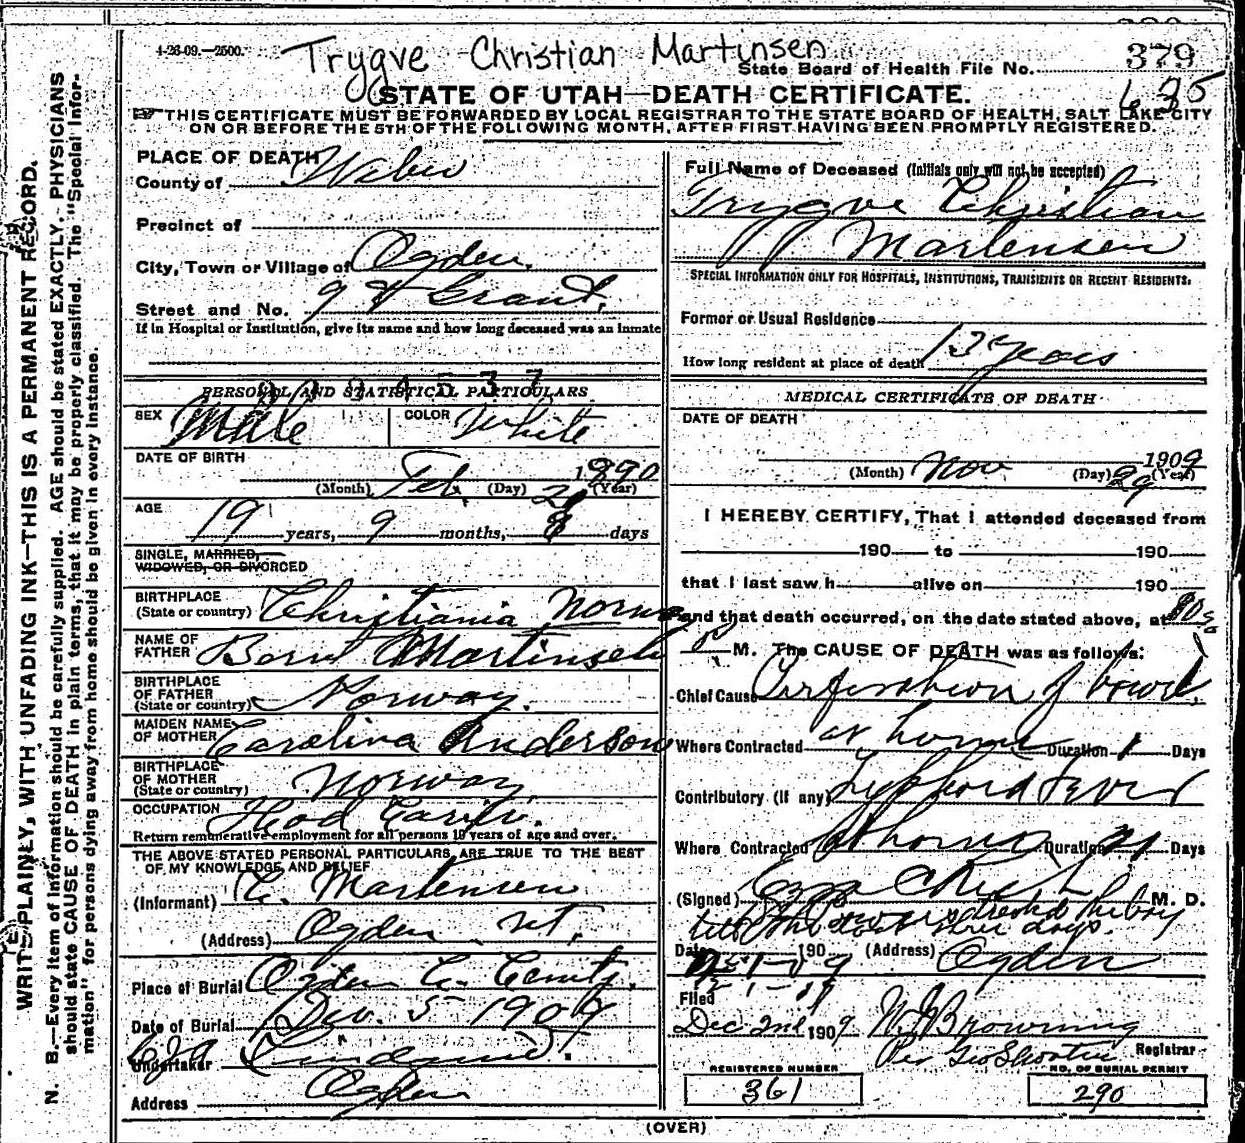 4-26-09.—2500.
Trygve Christian Martinsen
State Board of Health File No. 379
STATE OF UTAH—DEATH CERTIFICATE.
THIS CERTIFICATE MUST BE FORWARDED BY LOCAL REGISTRAR TO THE STATE BOARD OF HEALTH, SALT LAKE CITY
ON OR BEFORE THE 5TH OF THE FOLLOWING MONTH, AFTER FIRST HAVING BEEN PROMPTLY REGISTERED.
WRITE PLAINLY, WITH UNFADING INK—THIS IS A PERMANENT RECORD.
N. B.—Every item of information should be carefully supplied. AGE should be stated EXACTLY. PHYSICIANS
should state CAUSE OF DEATH in plain terms, that it may be properly classified. The "Special Infor-
mation" for persons dying away from home should be given in every instance.
PLACE OF DEATH
County of Weber
Precinct of
City, Town or Village of Ogden.
Street and No. Grant.
If in Hospital or Institution, give its name and how long deceased was an inmate
PERSONAL AND STATISTICAL PARTICULARS
SEX Male COLOR White
DATE OF BIRTH
(Month) Feb. (Day) (Year) 1890
AGE
19 years, 9 months, 8 days
SINGLE, MARRIED,
WIDOWED, OR DIVORCED
BIRTHPLACE
(State or country) Christiania Norway
NAME OF
FATHER Bernt Martinsen
BIRTHPLACE
OF FATHER
(State or country) Norway.
MAIDEN NAME
OF MOTHER Carolina Anderson
BIRTHPLACE
OF MOTHER
(State or country) Norway
OCCUPATION Hod Carrier.
Return remunerative employment for all persons 10 years of age and over.
THE ABOVE STATED PERSONAL PARTICULARS ARE TRUE TO THE BEST
OF MY KNOWLEDGE AND BELIEF
(Informant) C. Martensen
(Address) Ogden Ut.
Place of Burial Ogden C. Cemity.
Date of Burial Dec. 5 1909
Undertaker Lindquist.
Address Ogden
Full Name of Deceased (Initials only will not be accepted)
Trygve Christian
Martensen
SPECIAL INFORMATION ONLY FOR HOSPITALS, INSTITUTIONS, TRANSIENTS OR RECENT RESIDENTS:
Former or Usual Residence
How long resident at place of death 13 years
MEDICAL CERTIFICATE OF DEATH
DATE OF DEATH
(Month) Nov (Day) 29 (Year) 1909
I HEREBY CERTIFY, That I attended deceased from
190 to 190
that I last saw h alive on 190
and that death occurred, on the date stated above, at
M. The CAUSE OF DEATH was as follows:
Chief Cause Perforation of bowel
Where Contracted at home Duration 1 Days
Contributory (if any) Typhoid Fever
Where Contracted at home Duration 21 Days
(Signed) Ezra C Rich M. D.
treated the boy
till the last three days.
Date 190 (Address) Ogden
12-1-09
Filed
Dec 2nd 1909 W J Browning
Per Geo Shorten Registrar
REGISTERED NUMBER
361
NO. OF BURIAL PERMIT
290
(OVER)